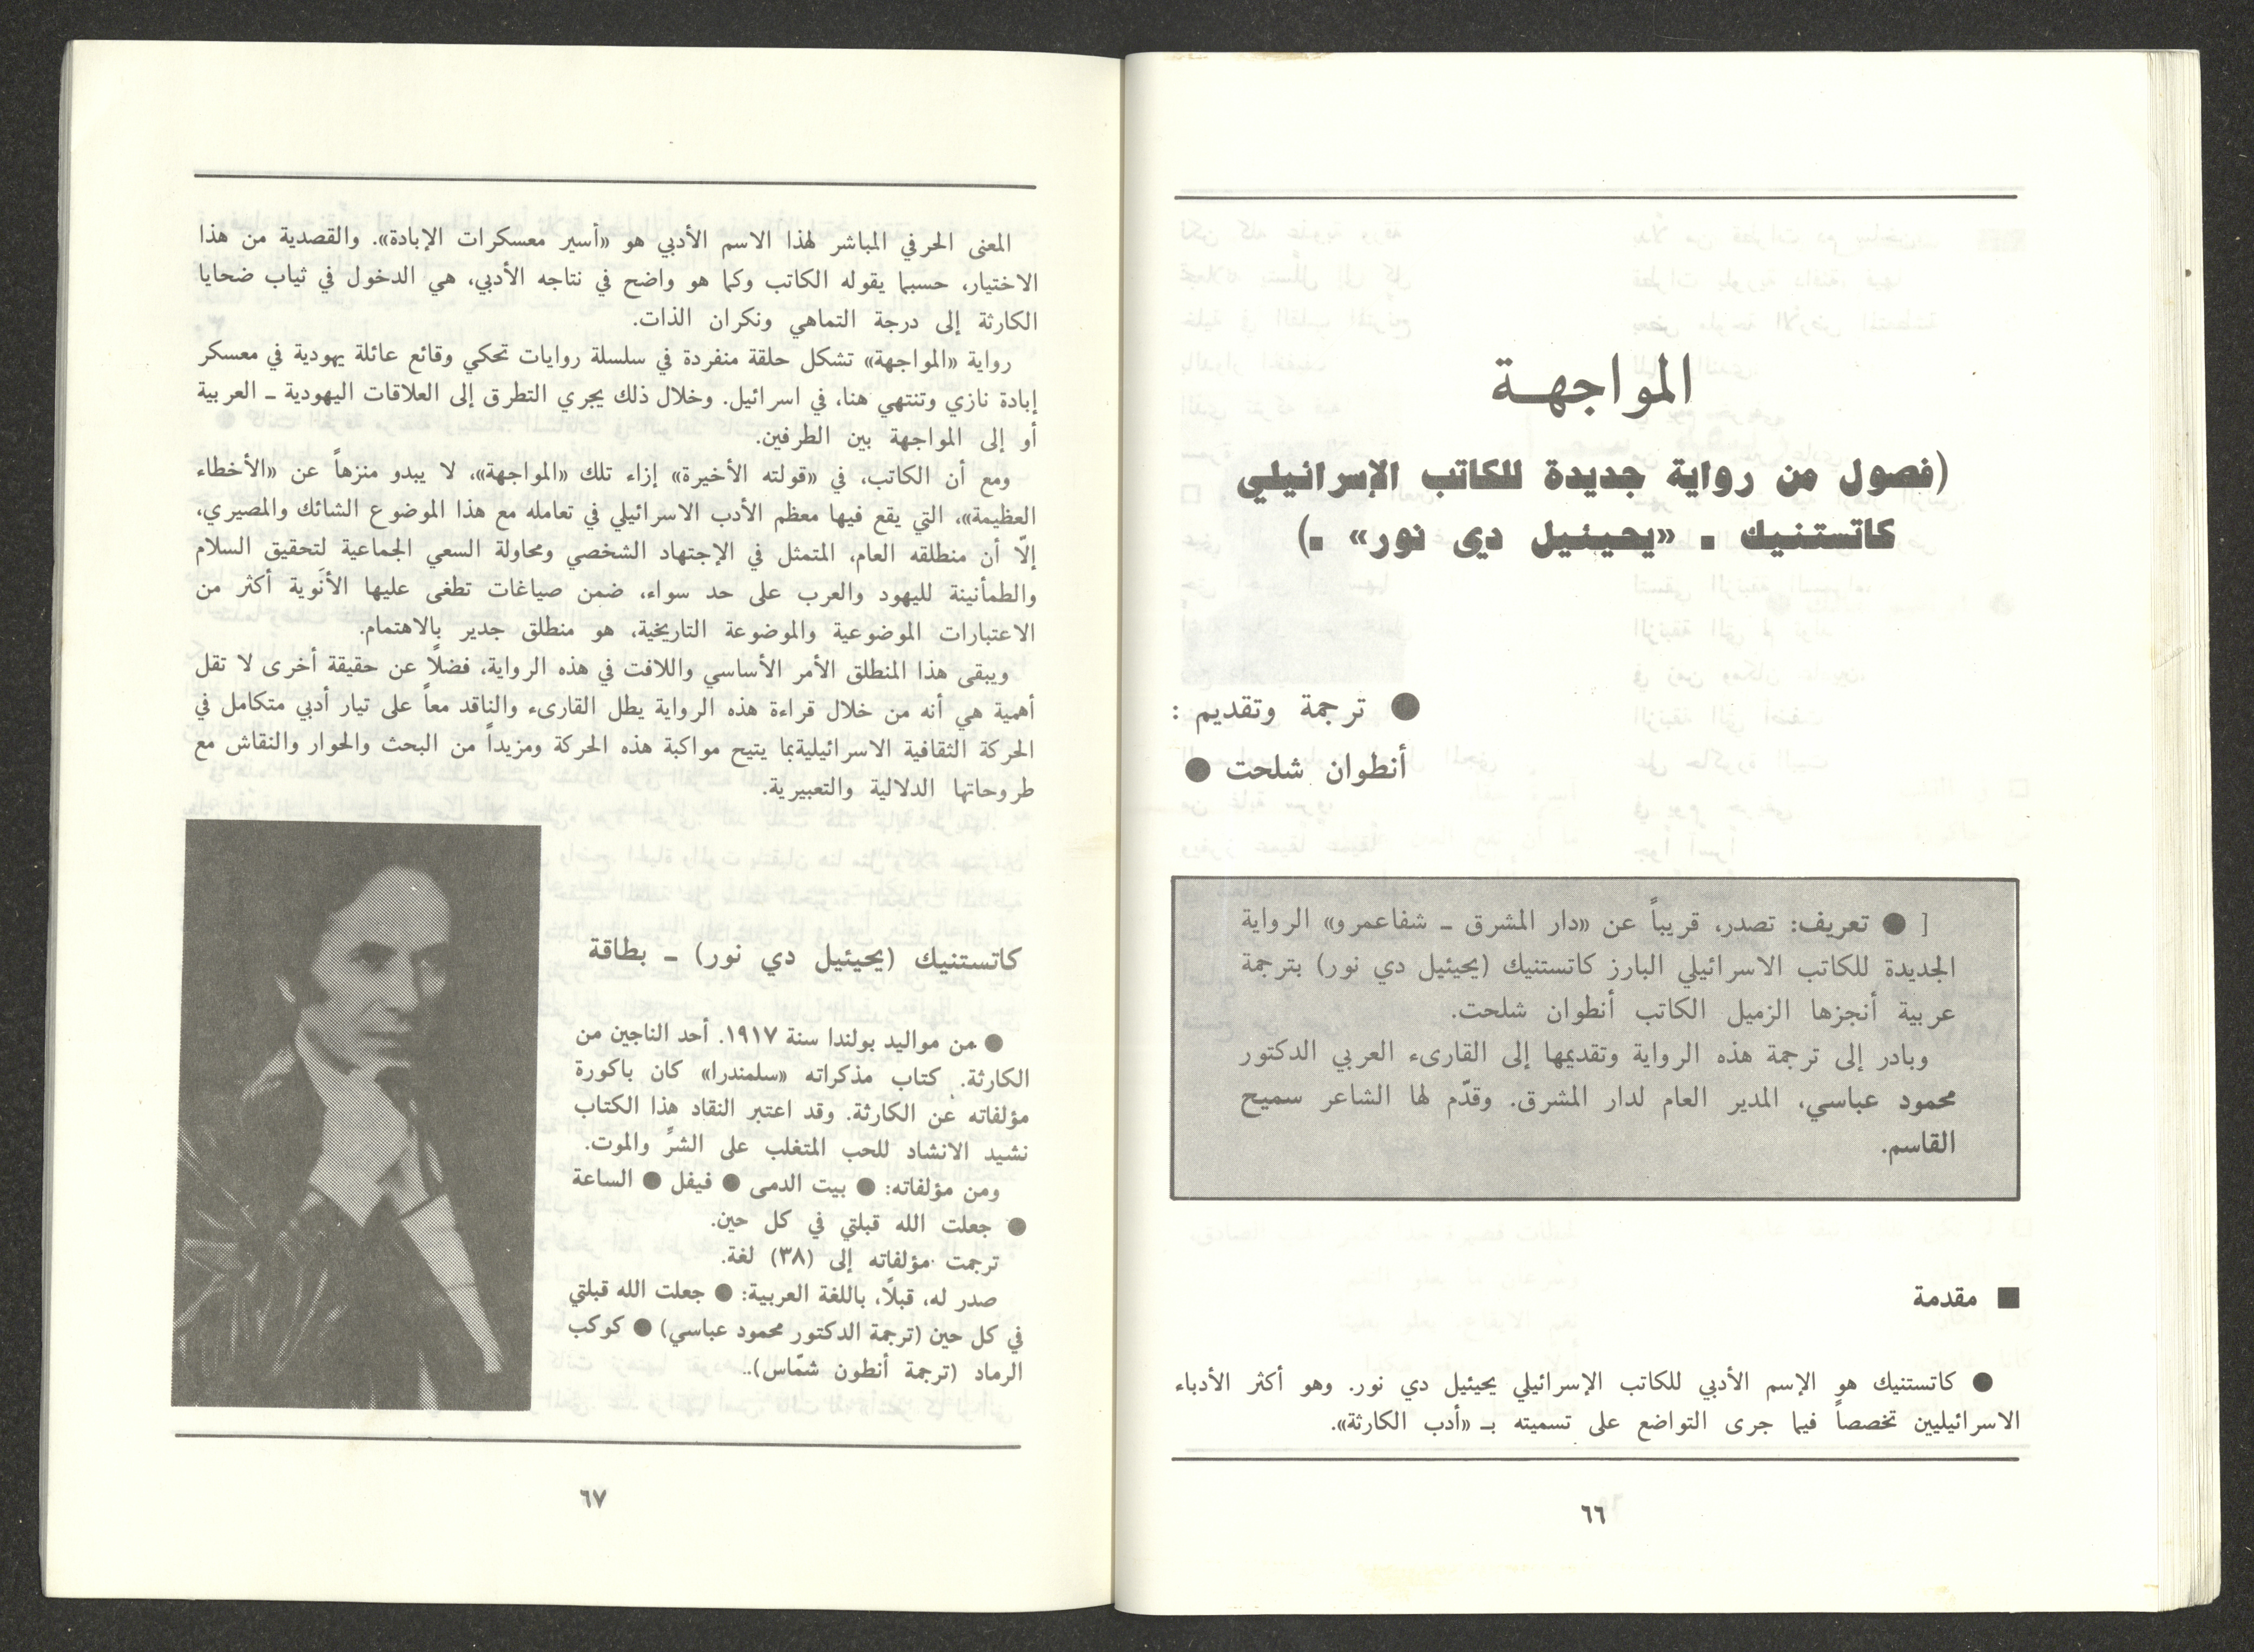 المواجهـة
(فصول من رواية جديدة للكاتب الإسرائيلي
كاتستنيك ـ «يحيئيل دي نور» ـ)
● ترجمة وتقديم :
أنطوان شلحت ●
[ ● تعريف: تصدر، قريباً عن «دار المشرق ـ شفاعمرو» الرواية
الجديدة للكاتب الاسرائيلي البارز كاتستنيك (يحيئيل دي نور) بترجمة
عربية أنجزها الزميل الكاتب أنطوان شلحت.
وبادر إلى ترجمة هذه الرواية وتقديمها إلى القارىء العربي الدكتور
محمود عباسي، المدير العام لدار المشرق. وقدّم لها الشاعر سميح
القاسم.
■ مقدمة
● كاتستنيك هو الإسم الأدبي للكاتب الإسرائيلي يحيئيل دي نور. وهو أكثر الأدباء
الاسرائيليين تخصصاً فيما جرى التواضع على تسميته بـ «أدب الكارثة».
٦٦
المعنى الحرفي المباشر لهذا الاسم الأدبي هو «أسير معسكرات الإبادة». والقصدية من هذا
الاختيار، حسبما يقوله الكاتب وكما هو واضح في نتاجه الأدبي، هي الدخول في ثياب ضحايا
الكارثة إلى درجة التماهي ونكران الذات.
رواية «المواجهة» تشكل حلقة منفردة في سلسلة روايات تحكي وقائع عائلة يهودية في معسكر
إبادة نازي وتنتهي هنا، في اسرائيل. وخلال ذلك يجري التطرق إلى العلاقات اليهودية ـ العربية
أو إلى المواجهة بين الطرفين.
ومع أن الكاتب، في «قولته الأخيرة» إزاء تلك «المواجهة»، لا يبدو منزهاً عن «الأخطاء
العظيمة»، التي يقع فيها معظم الأدب الاسرائيلي في تعامله مع هذا الموضوع الشائك والمصيري،
إلّا أن منطلقه العام، المتمثل في الإجتهاد الشخصي ومحاولة السعي الجماعية لتحقيق السلام
والطمأنينة لليهود والعرب على حد سواء، ضمن صياغات تطغى عليها الأنَوية أكثر من
الاعتبارات الموضوعية والموضوعة التاريخية، هو منطلق جدير بالاهتمام.
ويبقى هذا المنطلق الأمر الأساسي واللافت في هذه الرواية، فضلًا عن حقيقة أخرى لا تقل
أهمية هي أنه من خلال قراءة هذه الرواية يطل القارىء والناقد معاً على تيار أدبي متكامل في
الحركة الثقافية الاسرائيليةبما يتيح مواكبة هذه الحركة ومزيداً من البحث والحوار والنقاش مع
طروحاتها الدلالية والتعبيرية.
كاتستنيك (يحيئيل دي نور) ـ بطاقة
● من مواليد بولندا سنة ١٩١٧. أحد الناجين من
الكارثة. كتاب مذكراته «سلمندرا» كان باكورة
مؤلفاته عن الكارثة. وقد اعتبر النقاد هذا الكتاب
نشيد الانشاد للحب المتغلب على الشرِّ والموت.
ومن مؤلفاته: ● بيت الدمى ● فيفل ● الساعة
● جعلت الله قبلتي في كل حين.
ترجمت مؤلفاته إلى (٣٨) لغة.
صدر له، قبلًا، باللغة العربية: ● جعلت الله قبلتي
في كل حين (ترجمة الدكتور محمود عباسي) ● كوكب
الرماد (ترجمة أنطون شمّاس)..
٦٧